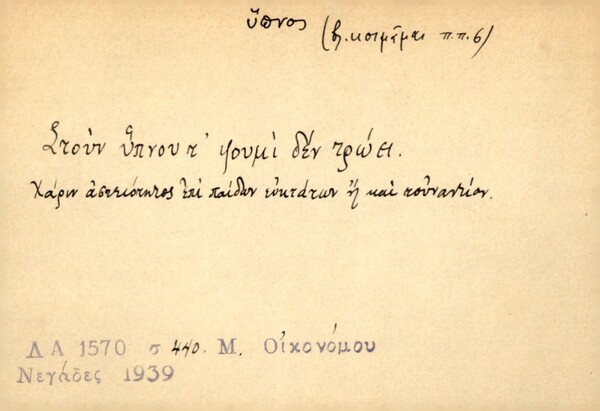 ὕπνος (βλ. κοιμᾶμαι π.π. 6)
Στοὺν ὕπνου τ' ψουμὶ δέν τρώει.
Χάριν ἀστειότητος ἐπὶ παίδων εὐκτάτων ἢ καὶ τοὐναντίον.
Λ Α 1570 σ 440. Μ. Οἰκονόμου
Νεγάδες 1939